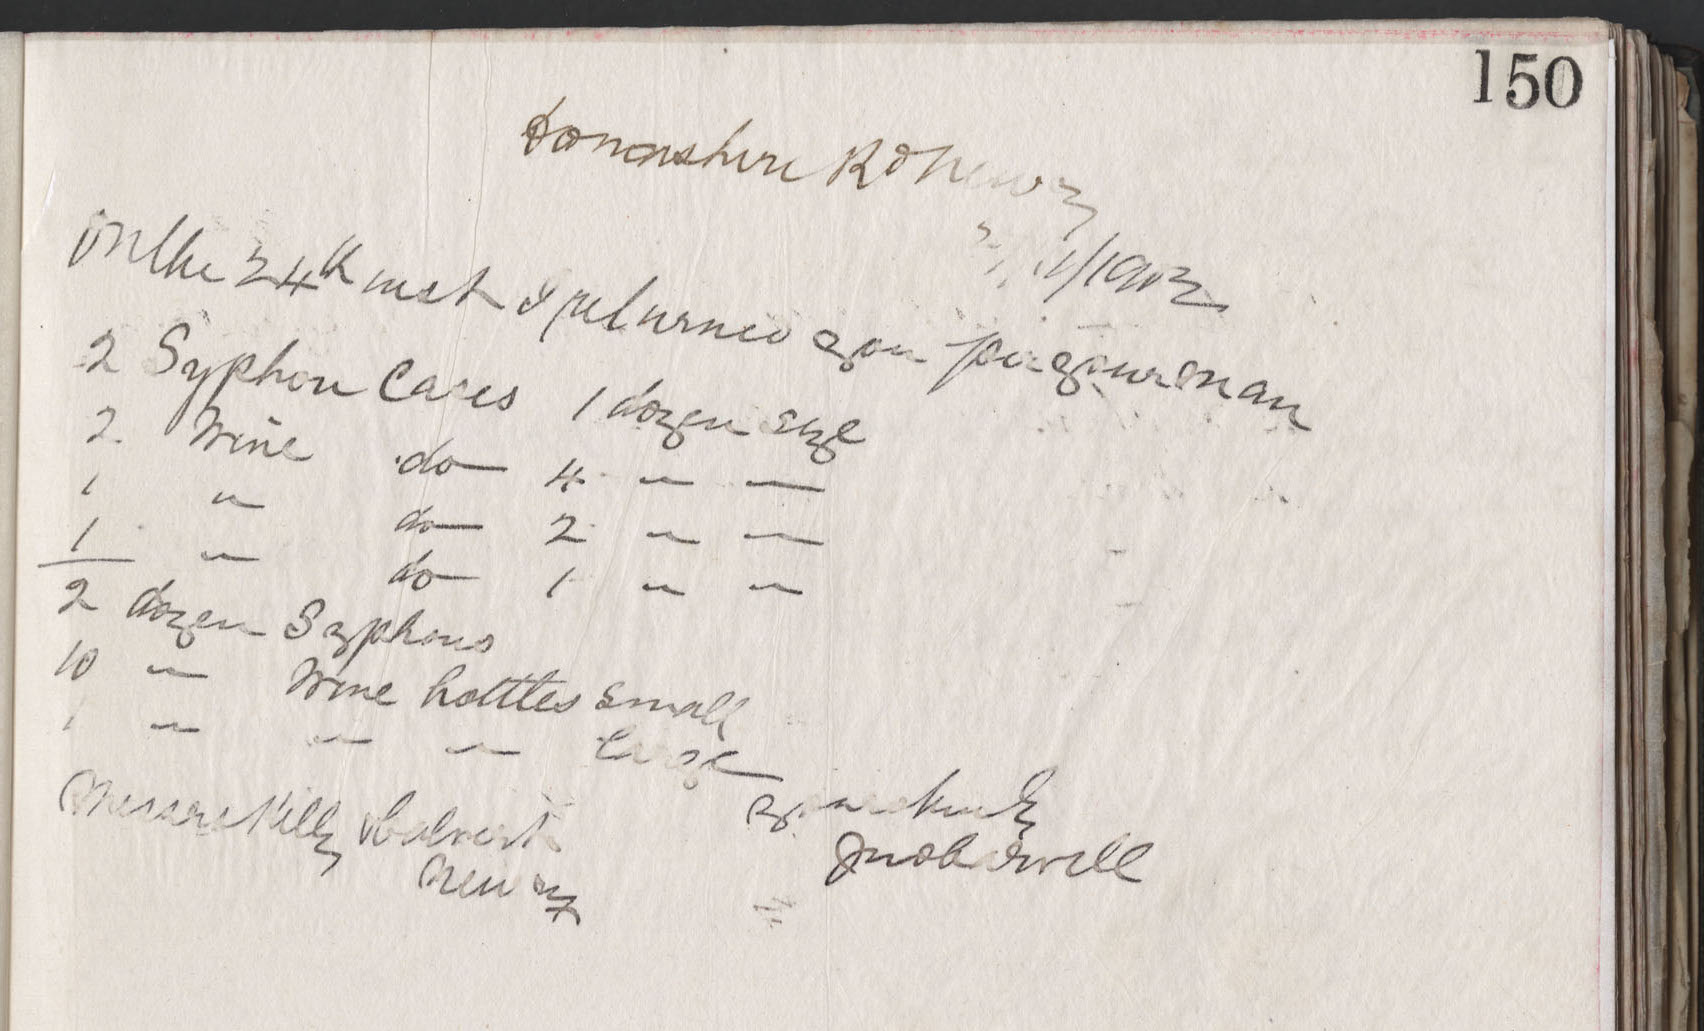 150
Downshire Rd Newry
11/1902
On the 24th inst I returned you per your man
2 Syphon Cases 1 dozen size
2 Wine do 4 " "
1 " do 2 " "
1 " do 1 " "
2 dozen Syphons
10 " Wine bottles Small
1 " " " Large
Yours truly
Messrs Kelly
Newry